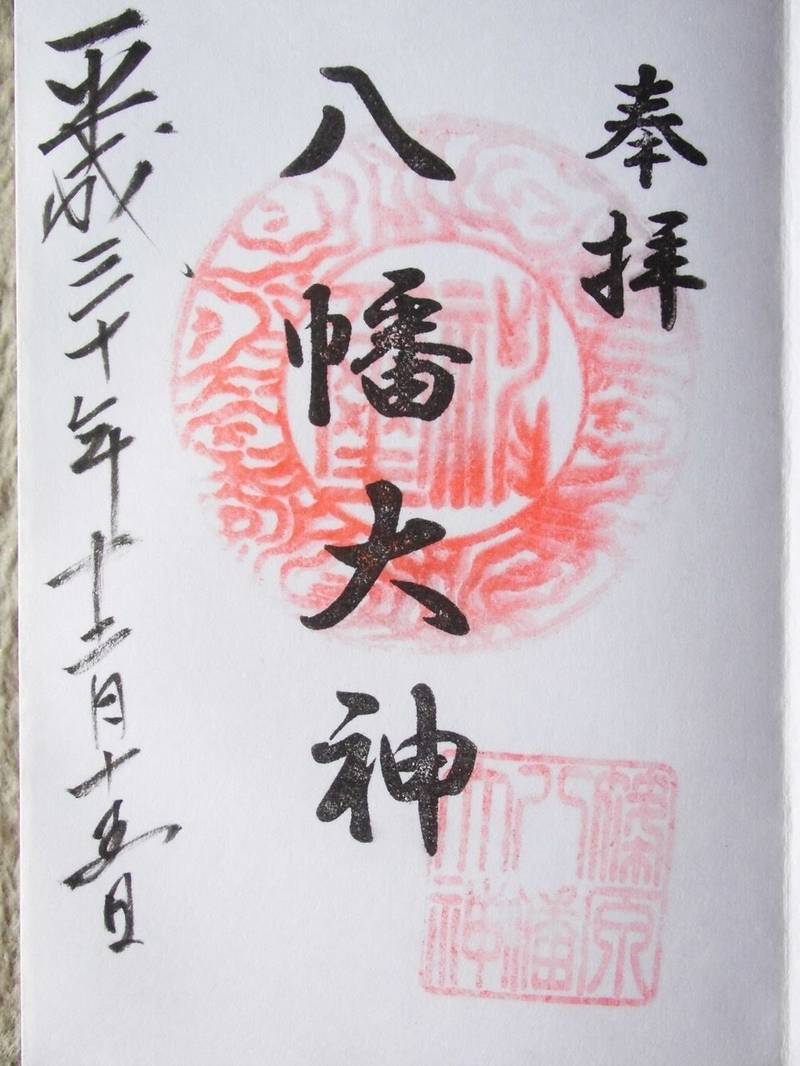 奉拝
八幡大神
篠原八幡大神
平成三十年十二月十五日